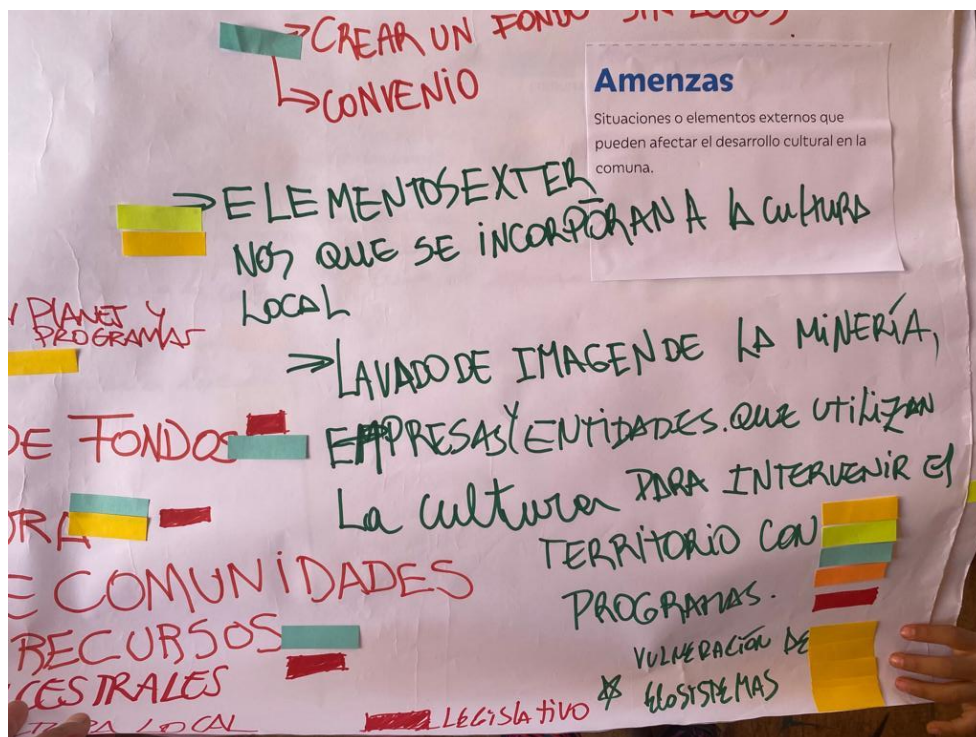 CREAR UN FONDO SIN LOGOS
CONVENIO
Amenzas
Situaciones o elementos externos que
pueden afectar el desarrollo cultural en la
comuna.
ELEMENTOS EXTER
NOS QUE SE INCORPORAN A LA CULTURA
LOCAL
PLANES Y
PROGRAMAS
LAVADO DE IMAGEN DE LA MINERÍA,
EMPRESAS Y ENTIDADES. QUE UTILIZAN
La cultura PARA INTERVENIR EL
TERRITORIO CON
PROGRAMAS.
DE FONDOS
COMUNIDADES
RECURSOS
CESTRALES
VULNERACIÓN DE
ECOSISTEMAS
LOCAL
LEGISLATIVO